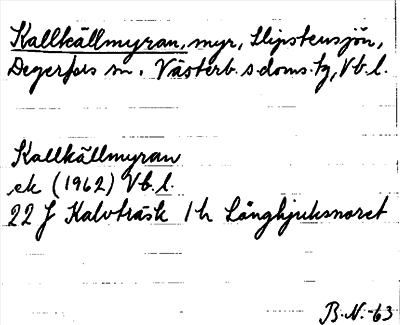 Kallkällmyran, myr, Slipstensjön,
Degerfors sn. Västerb. s. doms. tg, Vb. l.
Kallkällmyran
ek (1962) Vb. l.
22 J Kalvträsk 1 h Långhjuksnoret
B. N. -63